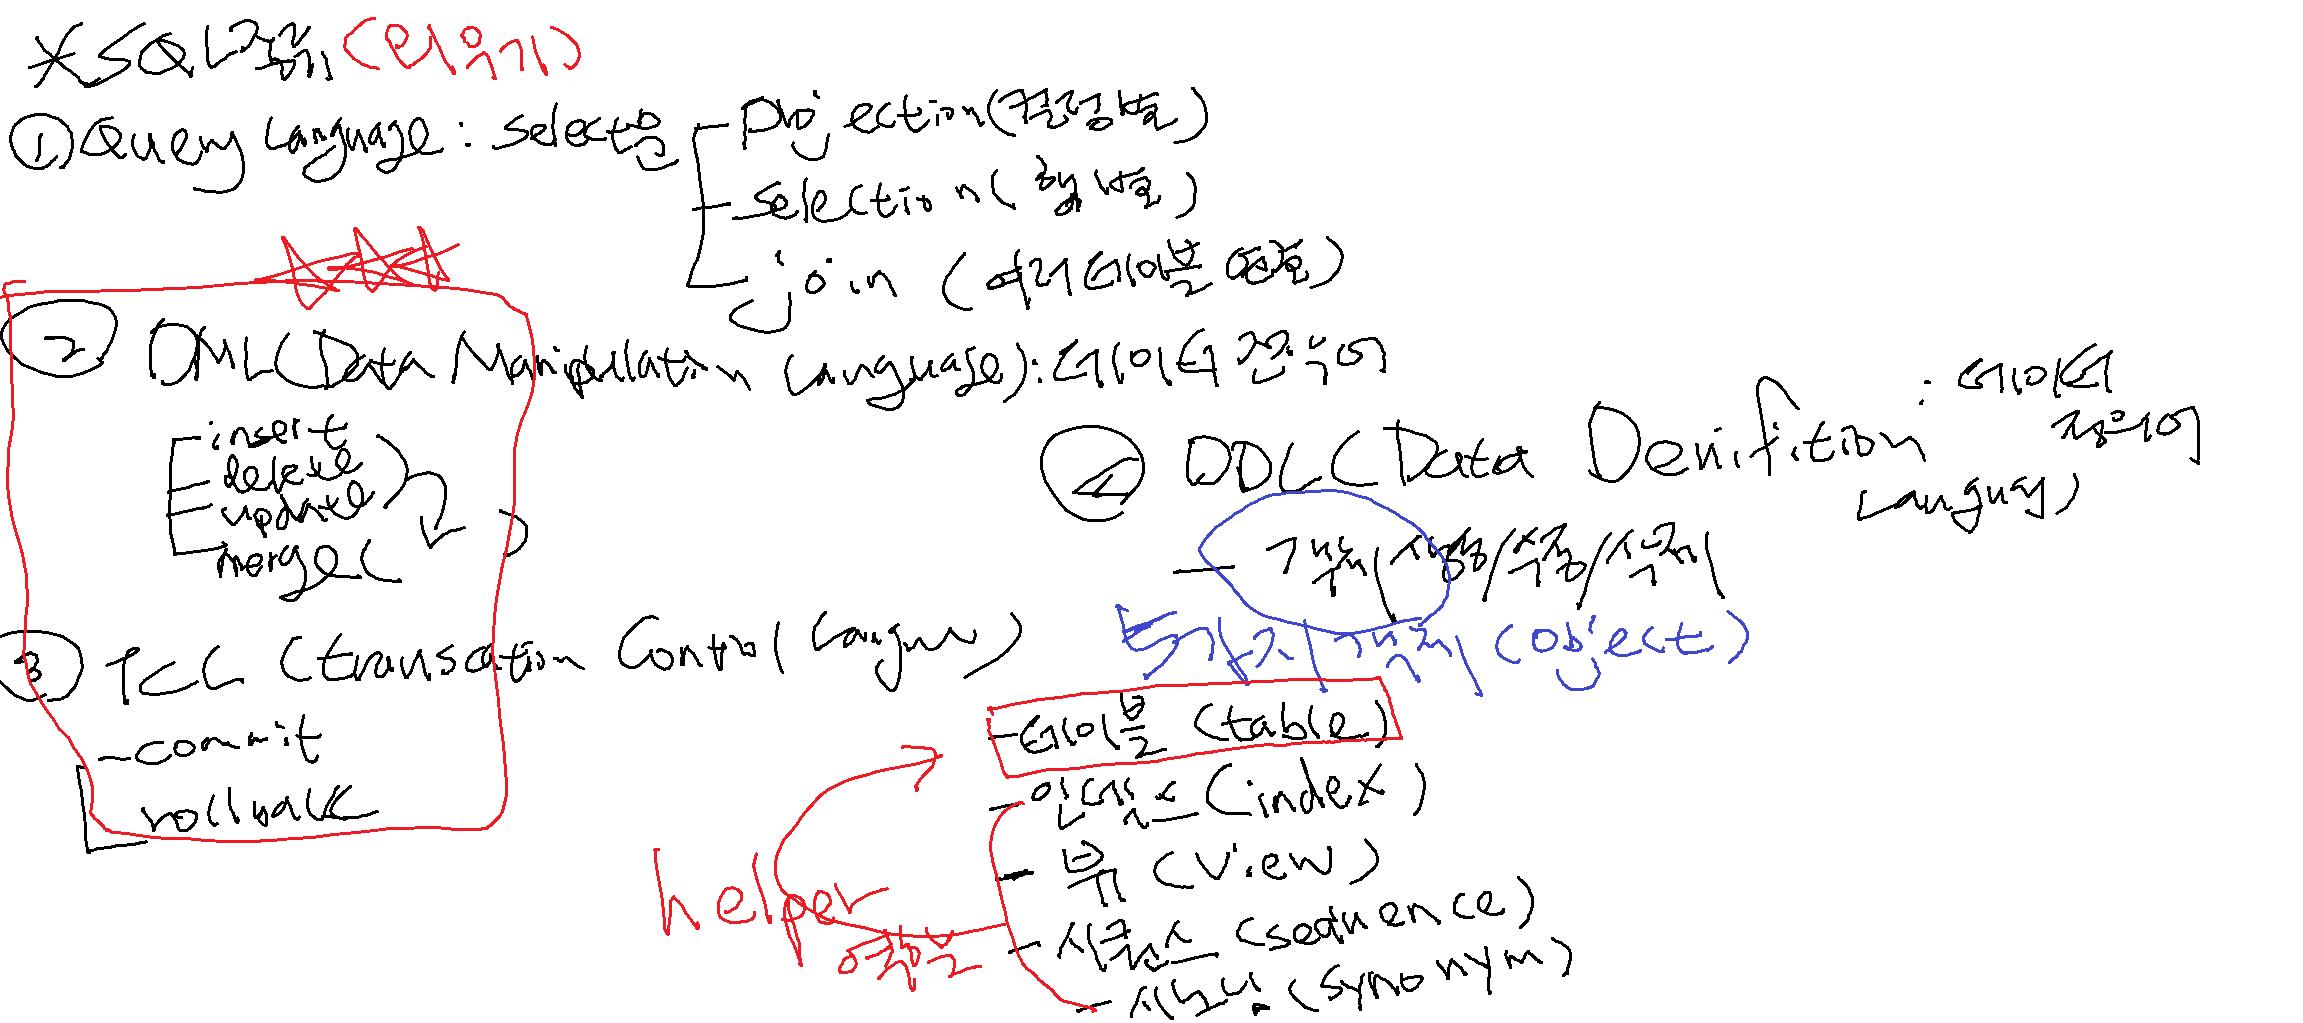 *SQL종류(외우기)
① Query Language : select문
Projection(컬럼 별로)
selection(행 별로)
join (여러 테이블 연동)
② DML(Data Manipulation Language):데이터 전위어
insert
delete
update
merge( )
③ TCL (transcation Control Langu )
-commit
rollback
④ DDL(Data Denifition : 데이터
정의어
Languag)
- 객체 생성/수정/삭제
5가지 객체 (object)
-테이블 (table)
-인덱스(index)
- 뷰 (View)
-시퀀스(sequence)
-시노님(synonym)
helper
역할